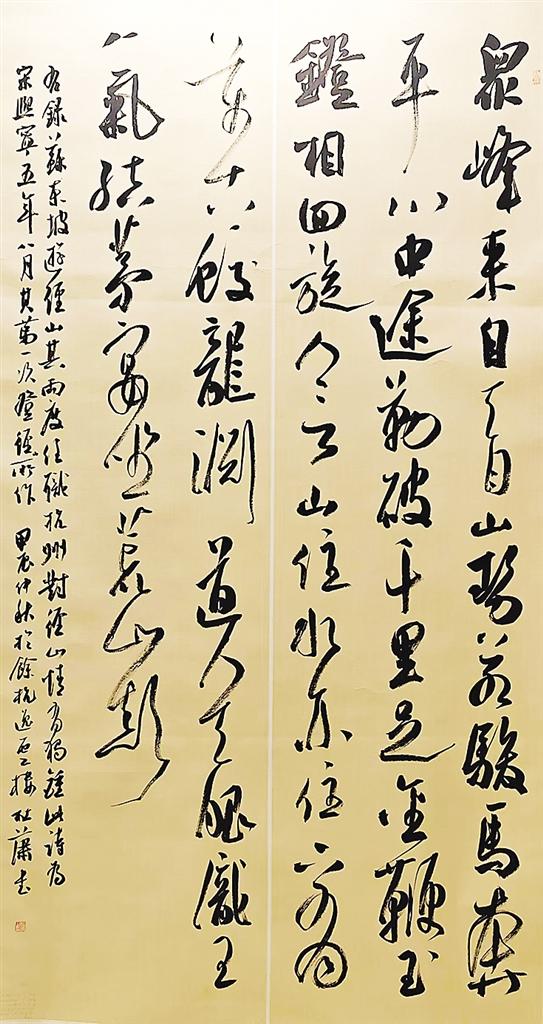 眾峰来自天目山勢若駿馬奔
平川中途勒破千里足金鞭玉
鐙相回旋人言山住水亦住下有
萬古蛟龍淵道人天眼識王
氣結茅宴坐荒山巔
右録蘇東坡遊徑山其兩度任職杭州對徑山情有獨鍾此詩為
宋熙寧五年八月其第一次登徑所作 甲辰仲秋於餘杭逸樓杜蕭書